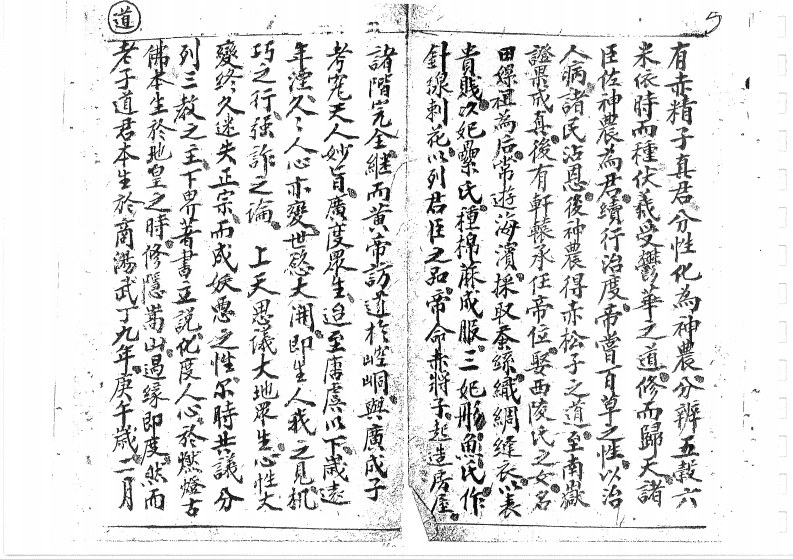 5
有赤精子真君分性化為神農分辨五穀六
米依時而種伏羲受鬱華之道修而歸天諸
臣佐神農為君續行治度帝嘗百草之性以治
人病諸民沾恩後神農得赤松子之道至南嶽
證果戒真後有軒轅承任帝位娶西陵氏之女名
田嫘祖為后常遊海濱採取蚕絲織綢縫衣以表
貴賤次妃纍氏種棉蔴成服三妃彤魚氏作
針線刺花以列君臣之品帝命赤將子起造房屋
諸階完全継而黃帝訪道於崆峒與廣成子
考究天人妙旨廣度眾生迨至唐虞以下歲遠
年湮久々人心亦變世慾大開即生人我之見机
巧之行強詐之論 上天思儀大地眾生心性大
變終久迷失正宗而成妖愚之性尔時共議分
列三教之主下界著書立說化度人心於燃燈古
佛本生於地皇之時修隱嵩山過緣即度然而
老子道君本生於商湯武丁九年庚午歲二月
道